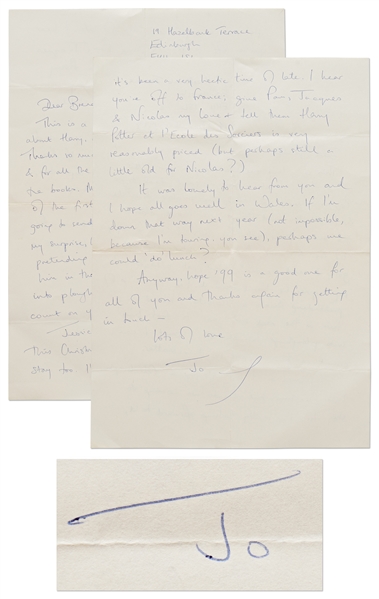 19 Hazelbank Terrace
Edinburgh
Dear
This is a
about Harry.
Thanks so
& for all the
the books.
of the first
going to send
my surprise,
pretending
him in the
into
count on
Jessi
This Christ
stay too
It's been a very hectic time of late. I hear
you're off to France, give Pam, Jacques
& Nicolas my love & tell them Harry
Potter et l'Ecole des Sorciers is very
reasonably priced (but perhaps still a
little old for Nicolas?)
It was lovely to hear from you and
I hope all goes well in Wales. If I'm
down that way next year (not impossible,
because I'm touring, you see), perhaps we
could 'do lunch'?
Anyway, hope '99 is a good one for
all of you and thanks again for getting
in touch –
lots of love
Jo
Jo